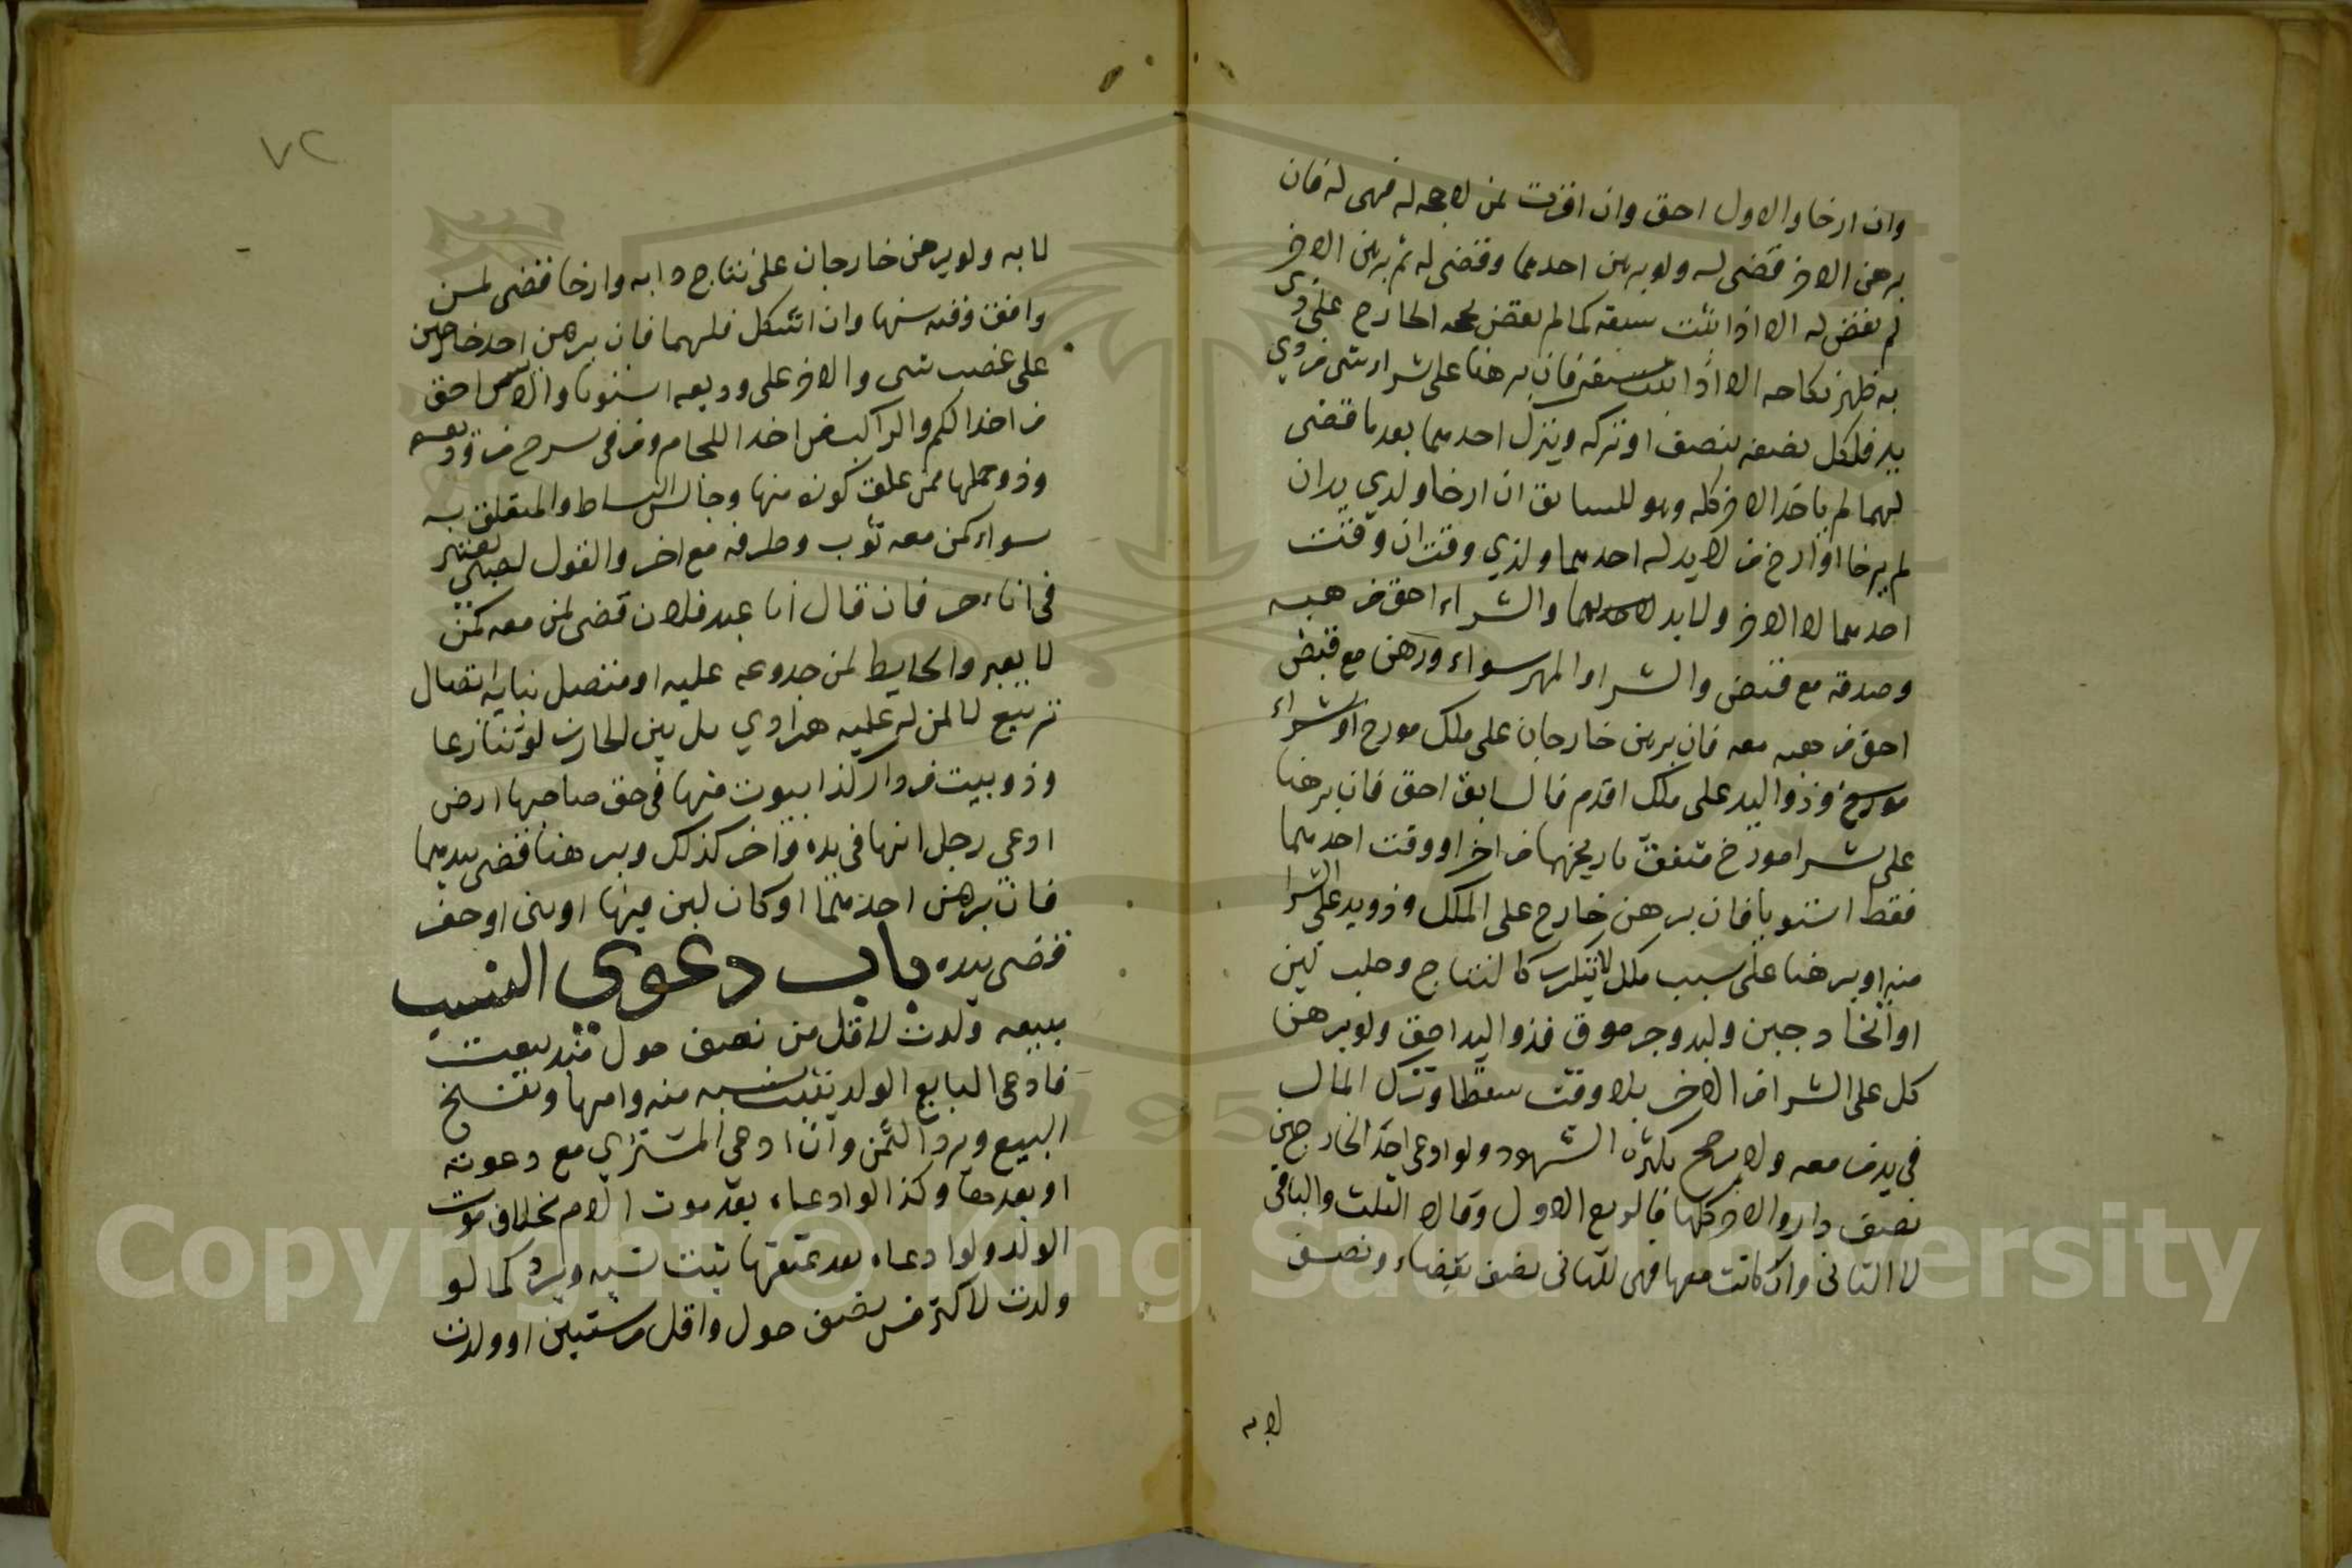 وان ارخا والاول احق وان اقرت لمن لا حجه له فهى له فان
برهن الاخر قضى له ولو برهن احدهما وقضى له ثم برهن الاخر
لم يقض له الا اذا اثبت سبقه كما لم يقض بحجه الخارج على ذى
يد ظهر نكاحه الا اذا اثبت سبقه فان برهنا على شراء شى من ذي
يد فلكل نصفه بنصف او تركه وبترك احدهما بعد ما قضى
لهما لم ياخذ الاخر كله وهو للسابق ان ارخا ولذي يد ان
لم يرخا او ارخ من لا يد له احدهما ولذي وقت ان وقت
احدهما لا الاخر ولا يد لاحدهما والشراء احق من هبه
وصدقه مع قبض والشرا والمهر سواء ورهن مع قبض
احق من هبه معه فان برهن خارجان على ملك مورخ او شراء
مورخ وذو اليد على ملك اقدم فالسابق احق فان برهنا
على شرا مورخ متفق تاريخهما من اخر او وقت احدهما
فقط استويا فان برهن خارج على الملك وذو يد على الشرا
منه او برهنا على سبب ملك لا يتكرر كالنتاج وحلب لبن
او اتخاد جبن ولبد وجز صوف فذو اليد احق ولو برهن
كل على الشرا من الاخر بلا وقت سقطا وترك المال
في يد من معه ولا يرجح بكثرة الشهود ولو ادعى احد الخارجين
نصف دار والاخر كلها فالربع الاول وقالا الثلث والباقى
للثانى وان كانت معهما فهى للثانى نصف بقضاء ونصف
لا به
٧٢
لا به ولو برهن خارجان على نتاج دابه وارخا قضى لمن
وافق وقته سنها وان اشكل فلهما فان برهن احد خارجين
على غصب شى والاخر على وديعه استويا واللابس احق
من اخذ الكم والراكب من اخذ اللجام ومن فى سرج من رديفه
وذو حملها ممن علق كوزه منها وجالس البساط والمتعلق به
سواء كمن معه ثوب وطرفه مع اخر والقول لصبى يعبر
فى انا حر فان قال انا عبد فلان قضى لمن معه كمن
لا يعبر والحايط لمن جدوعه عليه او متصل ببنايه اتصال
تربيع لا لمن له عليه هرادي بل بين الجارين لو تنازعا
وذو بيت من دار كذا بيوت منها فى حق ساحتها ارض
ادعى رجل انها فى يده واخر كذلك وبرهنا قضى بيدهما
فان برهن احدهما او كان لبن فيها او بنى او حفر
قضى بيده باب دعوى النسب
مبيعه ولدت لاقل من نصف حول منذ بيعت
فادعى البايع الولد يثبت نسبه منه واميتها ويفسخ
البيع ويرد الثمن وان ادعى المشتري مع دعوته
او بعدها وكذا لو ادعاه بعد موت الام بخلاف موت
الولد ولو ادعاه بعد عتقها ثبت نسبه ويرد كما لو
ولدت لاكثر من نصف حول واقل من سنتين او ولدت